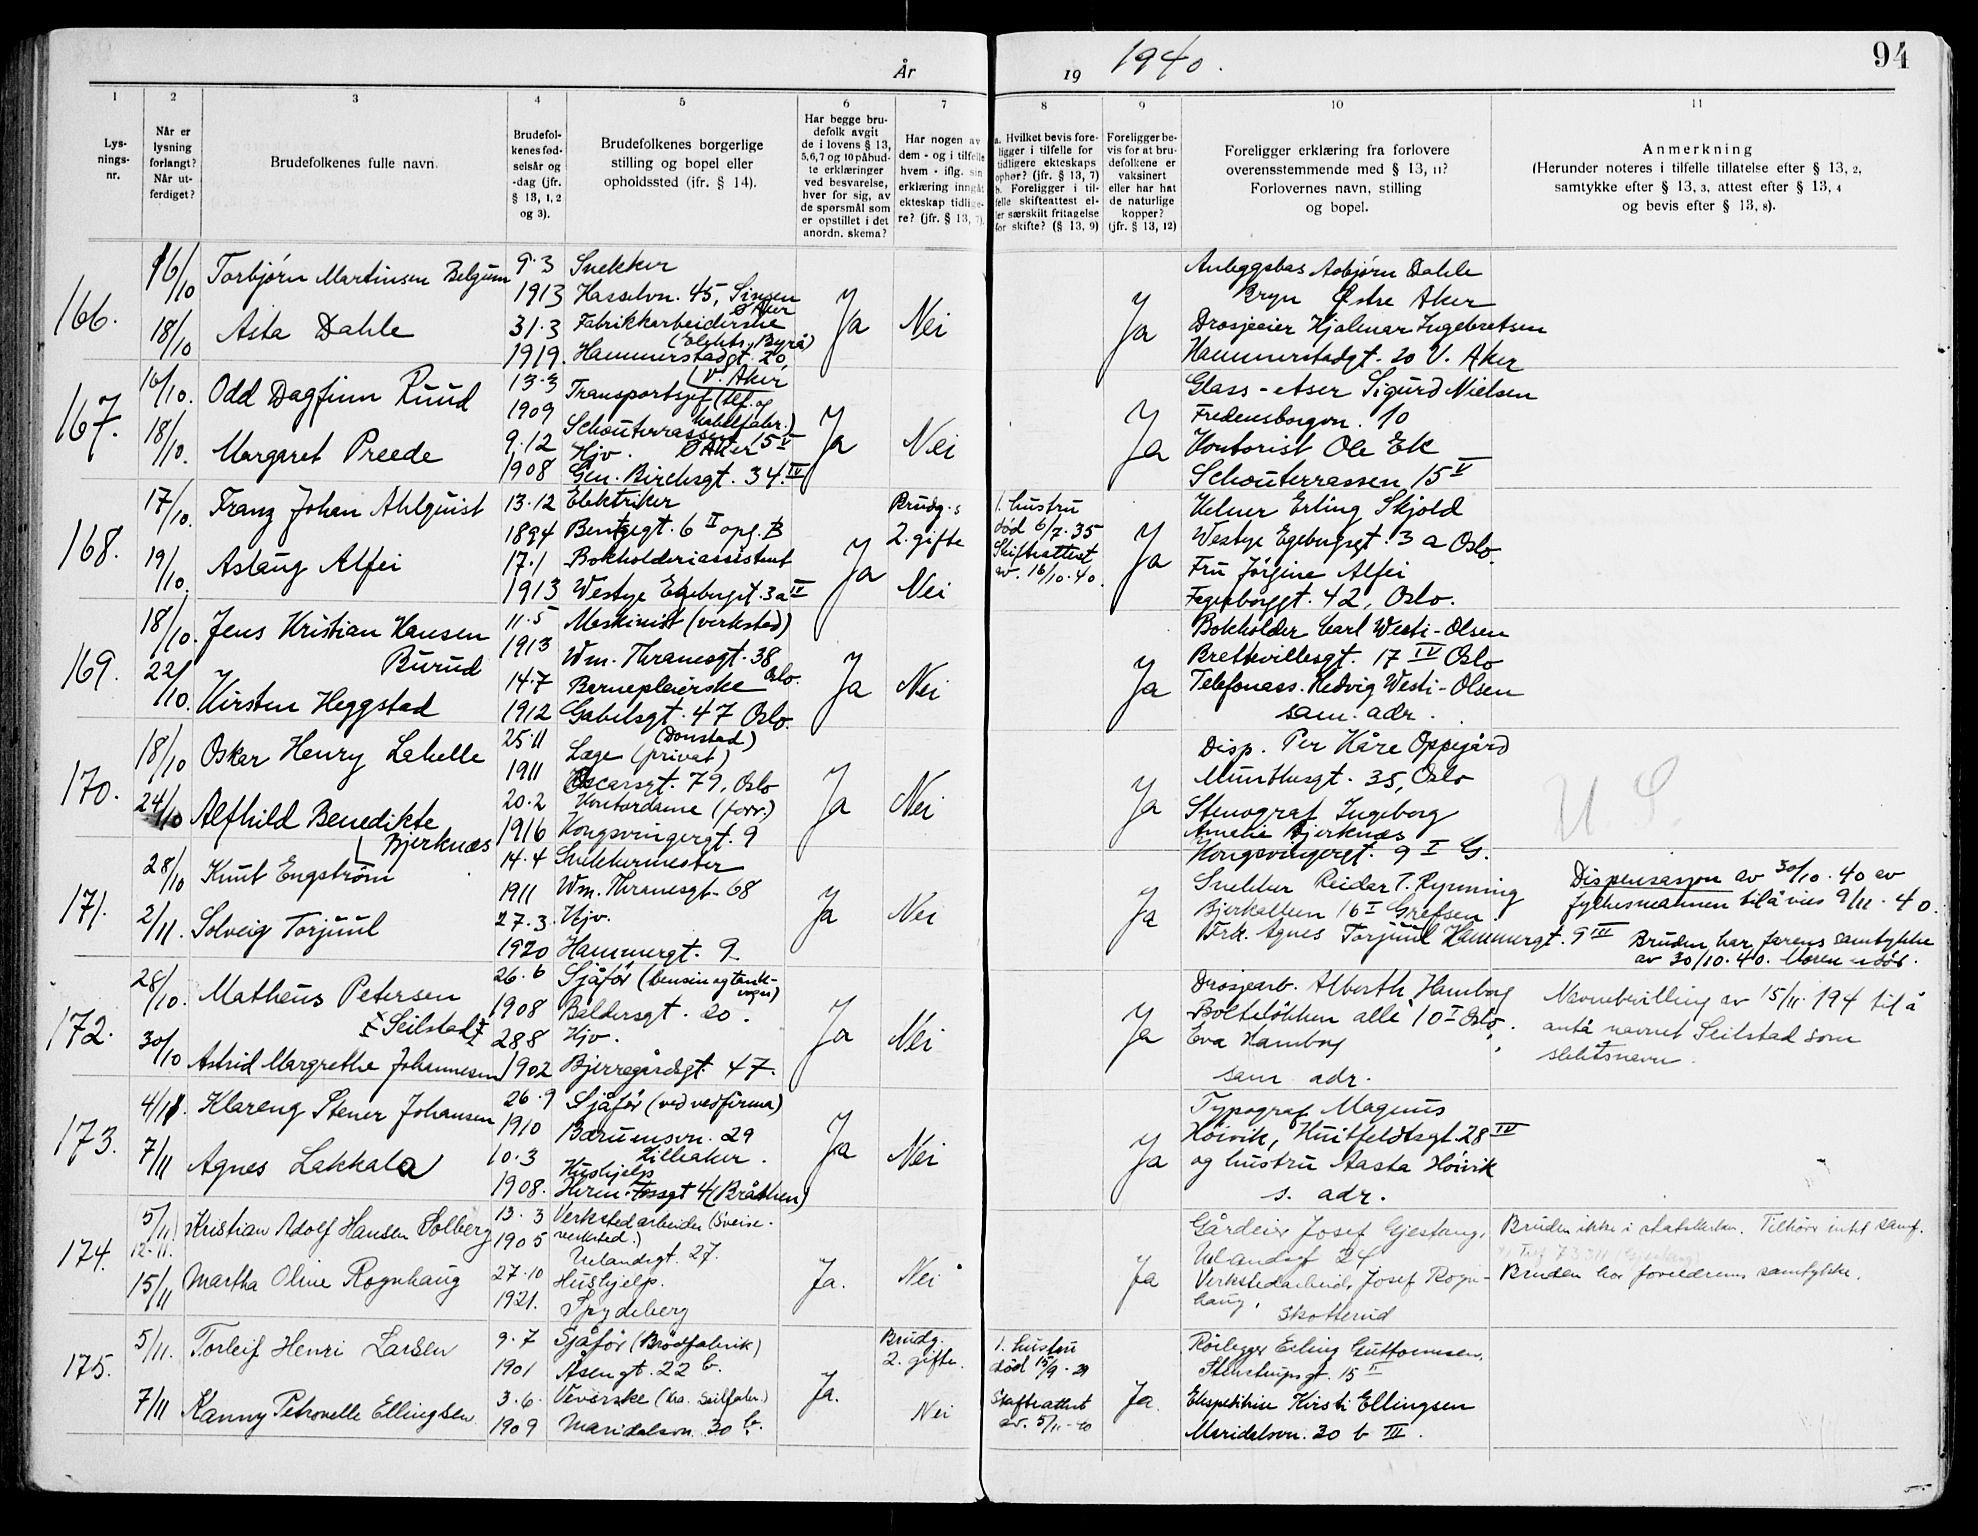 År
19 1940.
94
1
2
3
4
5
6
7
8
9
10
11
Lys-
nings-
nr.
Når er
lysning
forlangt?
Når ut-
ferdiget?
Brudefolkenes fulle navn.
Brudefol-
kenes fød-
selsår og
-dag (jfr.
§ 13, 1, 2
og 3).
Brudefolkenes borgerlige
stilling og bopel eller
opholdssted (ifr. § 14).
Har begge bru-
defolk avgit
de i lovens § 13,
5,6,7 og 10 påbud-
te erklæringer
ved besvarelse,
hver for sig, av
de spørsmål som
er opstillet i det
anordn. skema?
Har nogen av
dem - og i tilfelle
hvem - iflg. sin
erklæring inngåt
ekteskap tidlige-
re? (jfr. § 13, 7).
a. Hvilket bevis fore-
ligger i tilfelle for
tidligere ekteskaps
ophør? (jfr. § 13, 7)
b. Foreligger i til-
felle skifteattest el-
ler særskilt fritagelse
for skifte? (§ 13, 9)
Foreligger be-
vis for at bru-
defolkene er
vaksinert
eller har hat
de naturlige
kopper?
(jfr. § 13, 12)
Foreligger erklæring fra forlovere
overensstemmende med § 13, 11?
Forlovernes navn, stilling
og bopel.
Anmerkning
(Herunder noteres i tilfelle tillatelse efter § 13, 2,
samtykke efter § 13, 3, attest efter § 13, 4
og bevis efter § 13, 8).
166.
16/10
18/10
Torbjørn Martinsen Belgum
Asta Dahle
9.3
1913
31.3
1919.
Snekker
Hasselvn. 45, Sinsen
Ø Aker
Fabrikkarbeiderske
(Elekts. Byrå)
Hammerstadgt. 20,
V. Aker
Ja
Nei
Ja
Anleggsbas Asbjørn Dahle
Bryn Østre Aker
Drosjeeier Hjalmar Ingebretsen
Hammerstadgt. 20 V. Aker
167.
16/10.
18/10.
Odd Dagfinn Ruud
Margaret Preede
13.3
1909
9.12
1908
Transportsjef (tlf. og
kabelfabr.)
Schouterrassen 15 V
Ø Aker
Hjv.
Gen. Birchsgt. 34 IV
Ja
Nei
Ja
Glass-etser Sigurd Nielsen
Fredensborgvn. 10
Kontorist Ole Ek
Schouterrassen 15 V
168.
17/10.
19/10.
Franz Johan Ahlquist
Aslaug Alfei
13.12
1894
17.1
1913
Elektriker
Bentsegt. 6 I opg. B
Bokholderiassistent
Westye Egebergst. 3a IV
Ja
Brudg.s
2. gifte
Nei
1. hustru
død 6/7.35
Skifteattest
av. 16/10.40.
Ja
Kelner Erling Skjold
Westye Egebergsgt. 3 a Oslo.
Fru Jørgine Alfei
Fagerborggt. 42, Oslo.
169.
18/10.
22/10.
Jens Kristian Hansen
Burud
Kirsten Heggstad
11.5
1913
14.7
1912
Maskinist (verksted)
Wm. Thranesgt. 38
Oslo.
Barnepleierske
Gabelsgt. 47 Oslo.
Ja
Nei
Ja
Bokholder Carl Westi-Olsen
Brettevillesgt. 17 IV Oslo
Telefonass. Hedvig Westi-Olsen
sam. adr.
170.
18/10
24/10
Oskar Henry Labelle
Alfhild Benedikte
Bjerknæs
25.11
1911
20.2
1916
(Donstad)
Læge (privat)
Oscarsgt. 79, Oslo
Kontordame (forr.)
Kongsvingergt. 9
Ja
Nei
Ja
Disp. Per Kåre Oppegård
Munthesgt. 35, Oslo
Stenograf Ingeborg
Amelie Bjerknæs
Kongsvingergt. 9 I G.
U S.
171.
28/10
2/11.
Knut Engstrøm
Solveig Torjuul
14.4
1911
27.3.
1920
Snekkermester
Wm. Thranesgt. 68
Hjv.
Hammergt. 9
Ja
Nei
Ja
Snekker Reidar T. Rynning
Bjerkealleen 16 I Grefsen.
Frk. Agnes Torjuul Hammergt. 9 III
Dispensasjon av 30/10.40 av
fylkesmannen til å vies 9/11.40.
Bruden har farens samtykke
av 30/10.40. Moren død.
172.
28/10.
30/10
Matheus Petersen
x Seilstad x
Astrid Margrethe Johannesen
26.6
1908
28 8
1902
Sjåfør (bensin og tank-
vogn)
Baldersgt. 20.
Hjv.
Bjerregårdsgt. 47.
Ja
Nei
Ja
Drosjearb. Alberth Hamborg
Bolteløkken alle 10 I Oslo.
Eva Hamborg
sam. adr.
Navnebevilling av 15/11.194 til å
anta navnet Seilstad som
slektsnavn.
173.
4/11.
7/11
Klareng Stener Johansen
Agnes Lakkala
26.9
1910
10.3
1908.
Sjåfør (ved vedfirma)
Bærumsvn. 29
Lilleaker.
Hushjelp
Herm. Fossgt 4 (Bråthen)
Ja
Nei
Ja
Typograf Magnus
Höivik, Huitfeldtsgt. 28 IV
og hustru Aasta Höivik
s. adr.
174.
5/11
12-11.
15/11
Kristian Adolf Hansen Solberg
Martha Oline Rognhaug
13.3
1905
27.10
1921.
Verkstedarbeider (Sveise-
verksted.)
Uelandsgt. 27.
Hushjelp.
Spydeberg
Ja.
Nei
Ja
Gårdeier Josef Gjestang,
Uelandsgt 24
Verkstedarbeid. Josef Rogn-
haug,
Skotterud
Bruden ikke i statskirken. Tilhører intet samf.
Bruden har foreldrenes samtykke.
175.
5/11.
7/11
Torleif Henri Larsen
Kanny Petronelle Ellingsen
9.7
1901
3.6.
1909
Sjåfør (Brødfabrik)
Åsengt. 22 b.
Veverske (Kra. Seilfabr.)
Maridalsvn. 30 b.
Ja.
Brudg.
2. gifte.
Nei
1. hustru
død 15/9-29
Skifteattest
av. 5/11-40
Ja.
Rörlegger Erling Guttormsen.
Steenstrupsgt. 15 II
Ekspeditrise Kirsti Ellingsen
Maridalsvn. 30 b III.